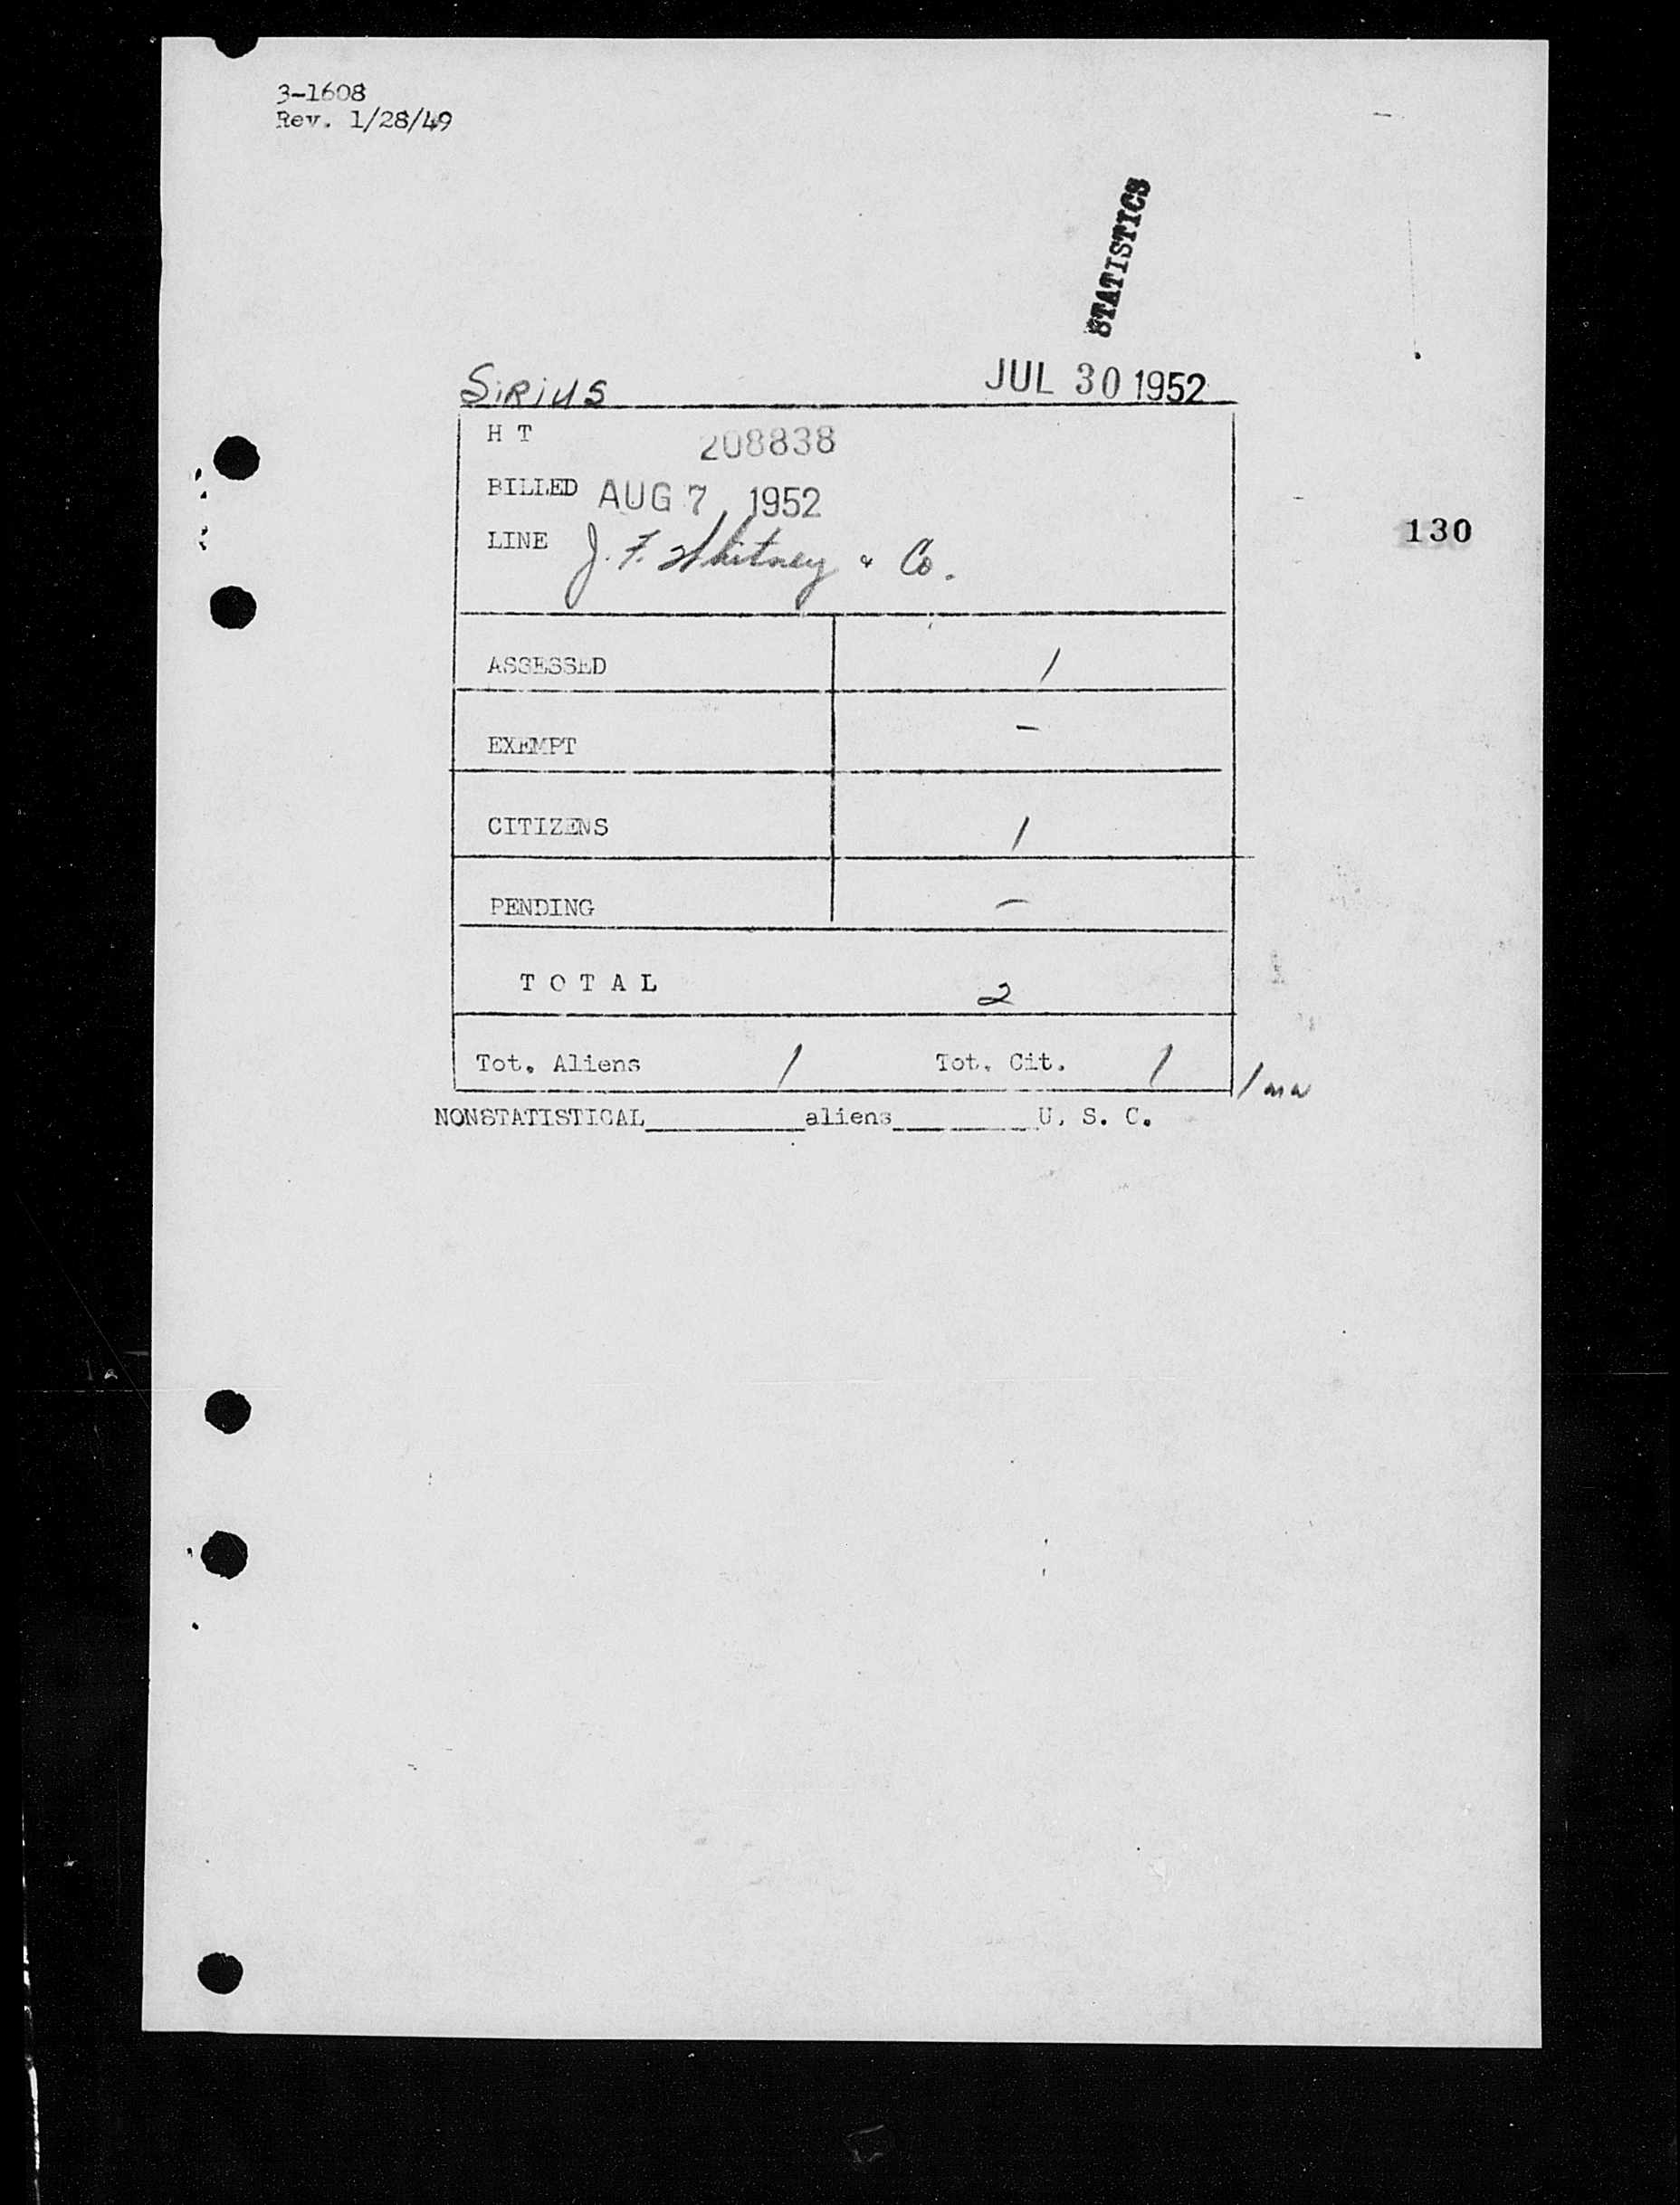 3-1608
Rev. 1/28/49
STATISTICS
SiRiUS JUL 30 1952
H T 208838
BILLED AUG 7 1952
LINE J. F. Whitney & Co.
130
ASSESSED 1
EXEMPT –
CITIZENS 1
PENDING –
T O T A L 2
Tot. Aliens 1 Tot. Cit. 1
NONSTATISTICAL__________aliens__________U. S. C.